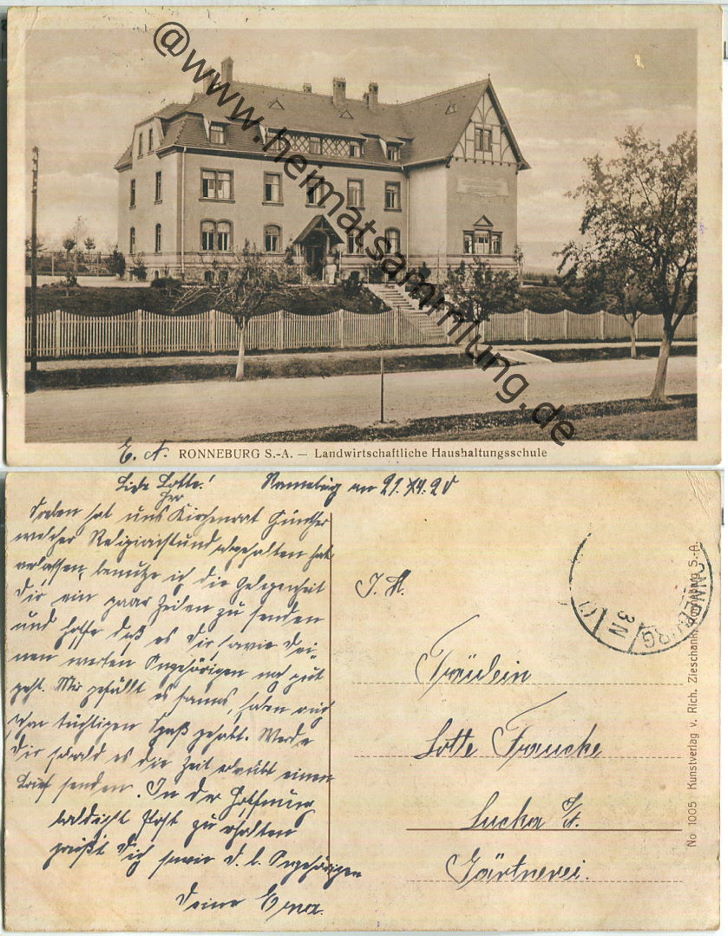 @www.heimatsammlung.de
E. N. RONNEBURG S.-A. — Landwirtschaftliche Haushaltungsschule
Liebe Lotte! Ronneburg am 21. XI. 20
Soeben hat uns Herr Kirchenrat Günther
welcher Religionsstund abgehalten hat
verlassen, benutze ich die Gelegenheit
Dir ein paar Zeilen zu senden
und hoffe daß es Dir sowie Dei-
nen werten Angehörigen noch gut
geht. Mir gefällt es famos, haben auch
schon tüchtigen Spaß gehabt. Werde
Dir sobald es die Zeit erlaubt einen
Brief senden. In der Hoffnung
baldigst Post zu erhalten
grüßt Dich sowie d. l. Angehörigen
Deine Erna.
RONNEBURG
3N
Fräulein
Lotte Francke
Lucka S/A.
Gärtnerei.
No 1005 Kunstverlag v. Rich. Zieschank, Ronneburg S.-A.